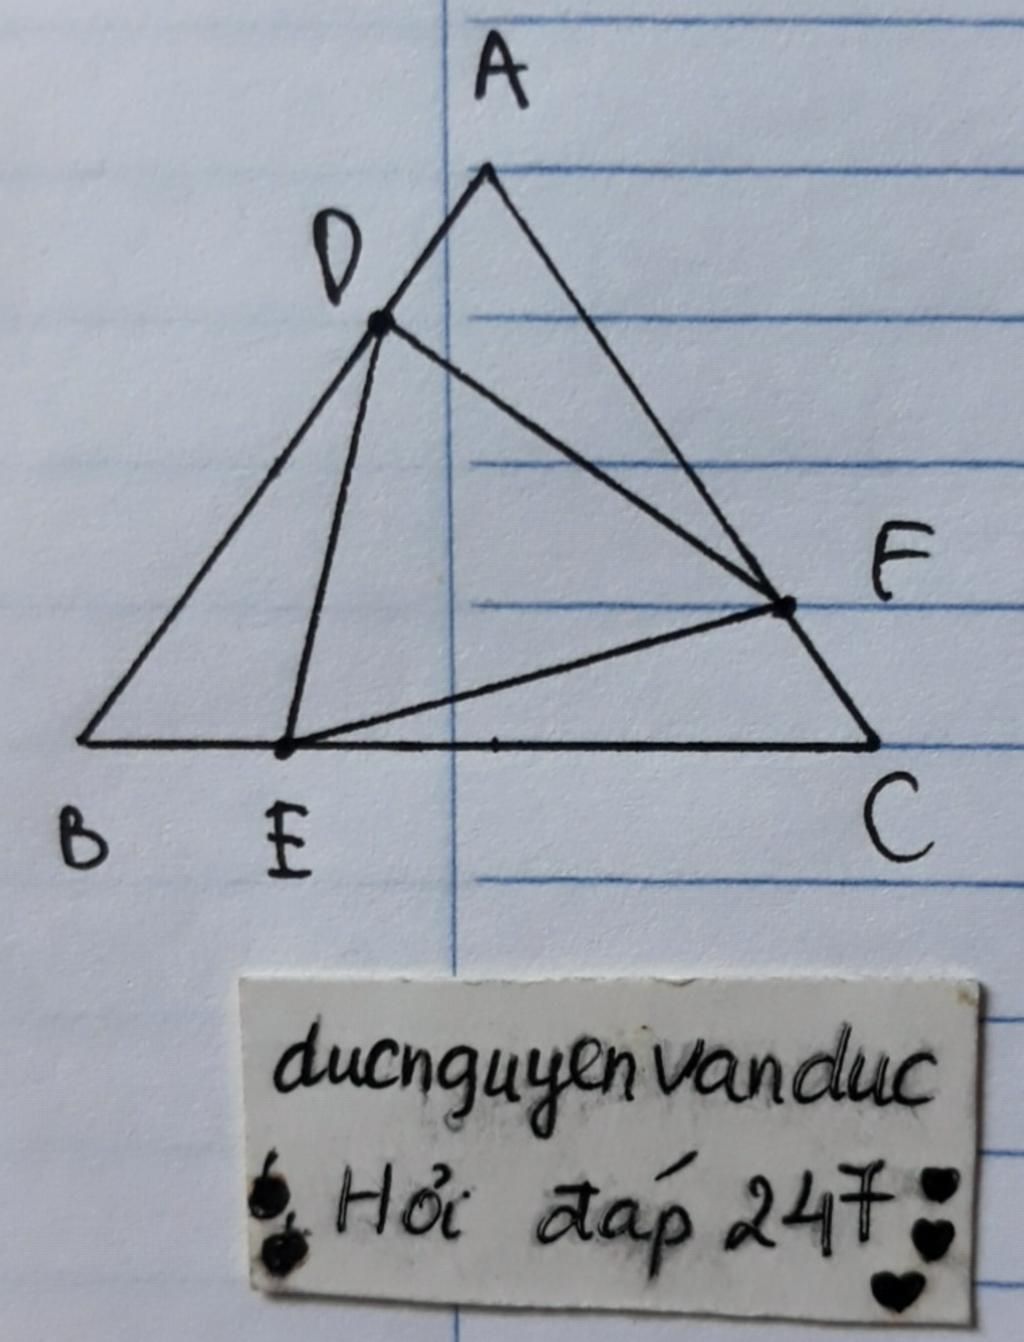 A
D
F
B E C
ducnguyenvanduc
Hỏi đáp 247